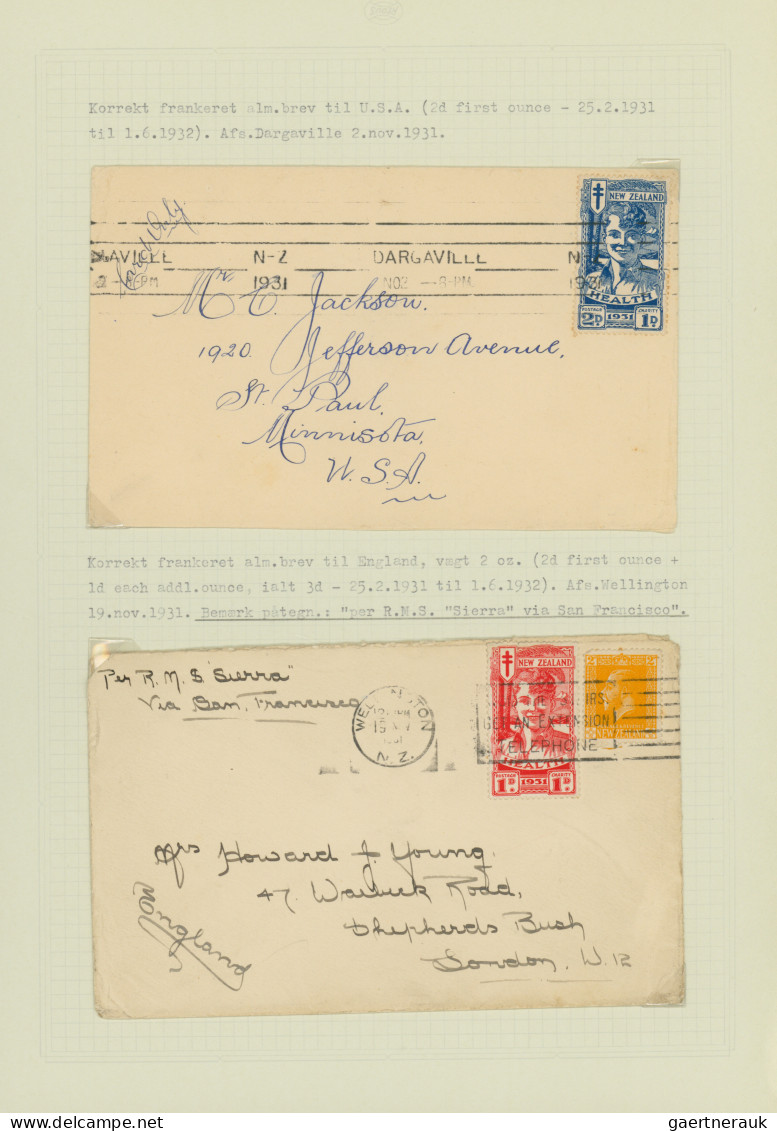 Korrekt frankeret alm.brev til U.S.A. (2d first ounce - 25.2.1931
til 1.6.1932). Afs.Dargaville 2.nov.1931.
Card Only
NEW ZEALAND
HEALTH
POSTAGE CHARITY
2D. 1931 1D.
AVILLE N-Z DARGAVILLE N-Z
2 -PM 1931 NO2 -8-PM 1931
Mr E. Jackson.
1920. Jefferson Avenue,
St. Paul.
Minnisota.
U.S.A.
Korrekt frankeret alm.brev til England, vægt 2 oz. (2d first ounce +
1d each addl.ounce, ialt 3d - 25.2.1931 til 1.6.1932). Afs.Wellington
19.nov.1931. Bemærk påtegn.: "per R.M.S. "Sierra" via San Francisco".
Per R.M.S "Sierra"
Via San Francisco
WELLINGTON
N.Z.
GET AN EXTENSION
TELEPHONE
NEW ZEALAND
HEALTH
POSTAGE CHARITY
1D. 1931 1D.
NEW ZEALAND
Mrs Howard J. Young.
47, Warwick Road,
Shepherds Bush
London, W.12
England
gaertnerauk